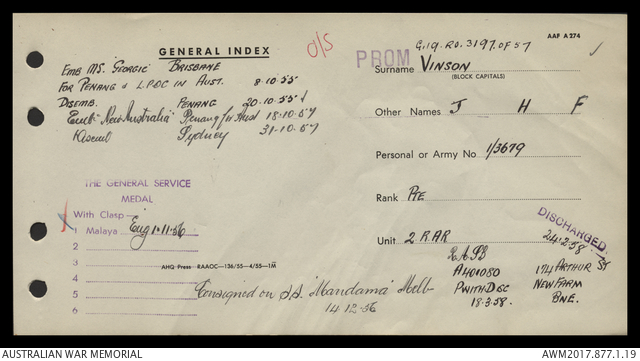 AAF A 274
G.19. RO. 3197 OF 57
GENERAL INDEX
O/S
PROM
EMB MS. "GEORGIC" BRISBANE
FOR PENANG & L.P.O.C IN AUST. 8·10·55
DISEMB. PENANG 20·10·55
Emb "New Australia" Penang for Aust 18·10·57
Disemb Sydney 31·10·57
Surname VINSON
(BLOCK CAPITALS)
Other Names J H F
Personal or Army No 1/3679
Rank PTE
Unit 2 RAR
DISCHARGED
24·2·58
THE GENERAL SERVICE
MEDAL
With Clasp
1 Malaya Eng 1·11·56
2
3
4
5
6
AHQ Press RAAOC—136/55—4/55—1M
Consigned on S.S. "Mandama" Melb
14·12·56
A401080
P WITH DSC
18·3·58.
174 ARTHUR ST
NEW FARM
BNE.
AUSTRALIAN WAR MEMORIAL
AWM2017.877.1.19